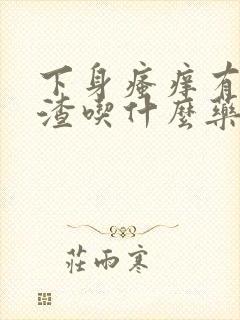 下身瘙痒有
渣喫什麼藥
莊雨寒